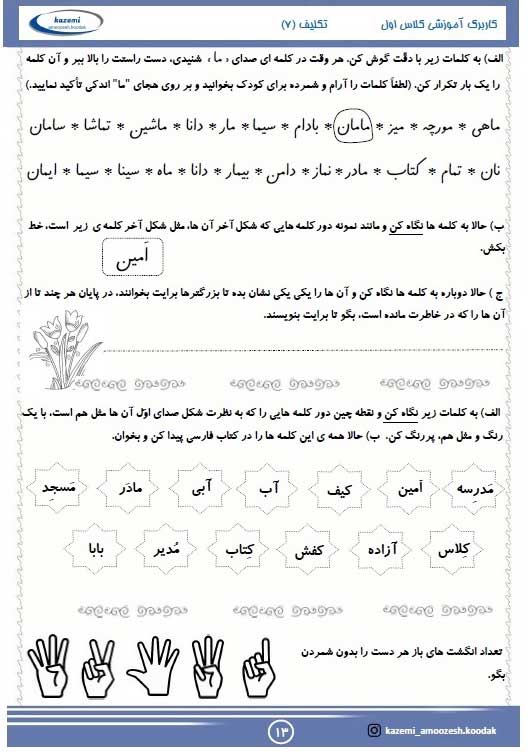 کاربرگ آموزشی کلاس اول
تکلیف (۷)
kazemi
amoozesh.koodak
الف) به کلمات زیر با دقّت گوش کن. هر وقت در کلمه ای صدای « ما » شنیدی، دست راستت را بالا ببر و آن کلمه
را یک بار تکرار کن. (لطفاً کلمات را آرام و شمرده برای کودک بخوانید و بر روی هجای "ما" اندکی تأکید نمایید.)
ماهی * مورچه * میز * مامان * بادام * سیما * مار * دانا * ماشین * تماشا * سامان
نان * تمام * کتاب * مادر * نماز * دامن * بیمار * دانا * ماه * سینا * سیما * ایمان
ب) حالا به کلمه ها نگاه کن و مانند نمونه دور کلمه هایی که شکل آخر آن ها، مثل شکل آخر کلمه ی زیر است، خط
بکش.
اَمین
ج ) حالا دوباره به کلمه ها نگاه کن و آن ها را یکی یکی نشان بده تا بزرگترها برایت بخوانند، در پایان هر چند تا از
آن ها را که در خاطرت مانده است، بگو تا برایت بنویسند.
الف) به کلمات زیر نگاه کن و نقطه چین دور کلمه هایی را که به نظرت شکل صدای اوّل آن ها مثل هم است، با یک
رنگ و مثل هم، پر رنگ کن. ب) حالا همه ی این کلمه ها را در کتاب فارسی پیدا کن و بخوان.
مَدرِسه اَمین کیف آب آبی مادَر مَسجِد
کِلاس آزاده کفش کِتاب مُدیر بابا
تعداد انگشت های باز هر دست را بدون شمردن
بگو.
۱۳
kazemi_amoozesh.koodak